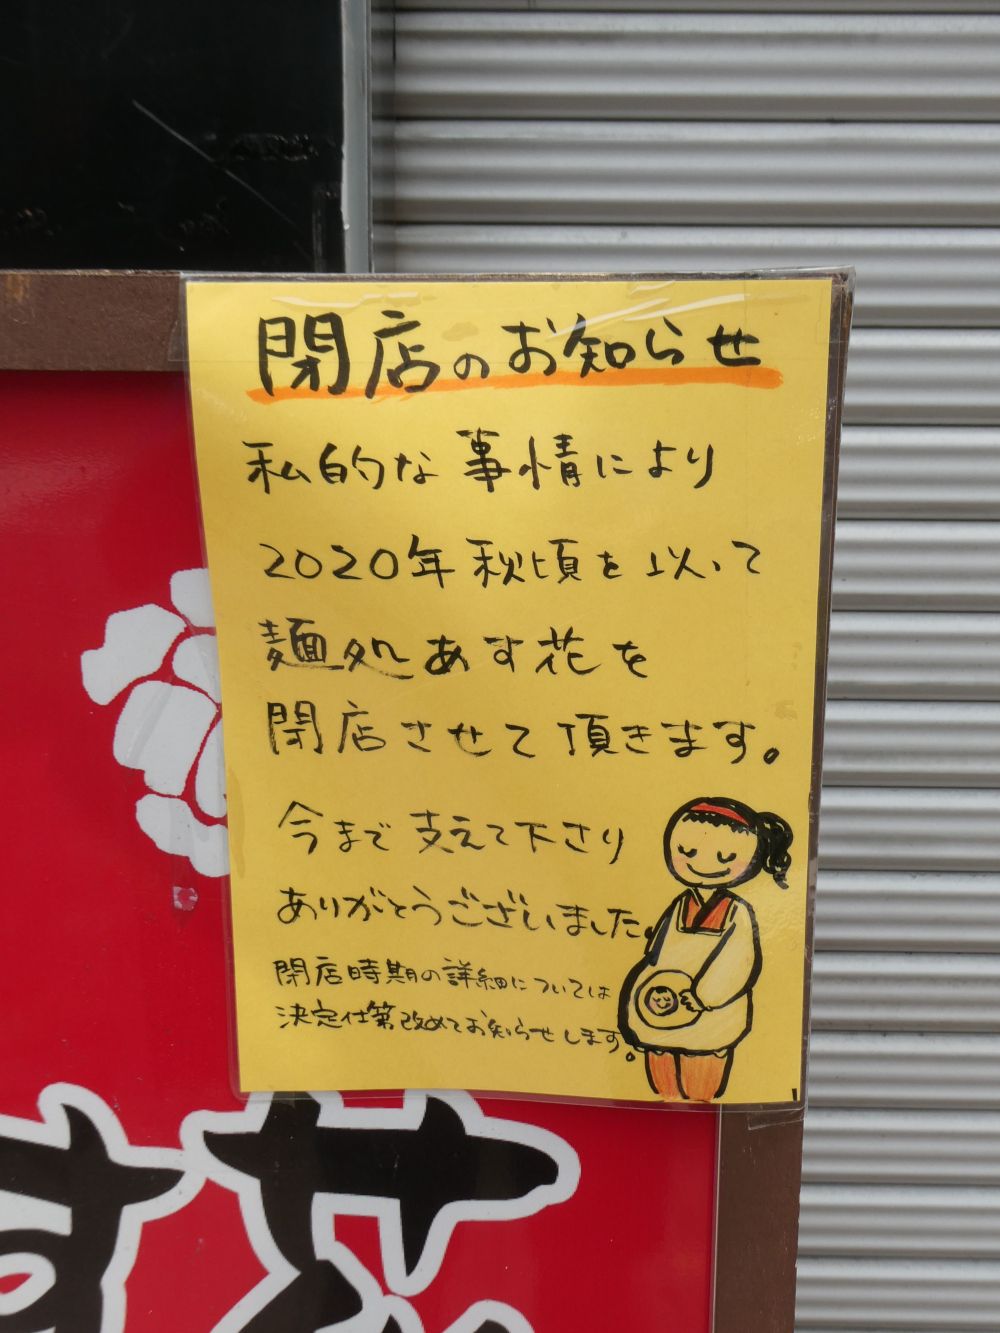 閉店のお知らせ
私的な事情により
2020年秋頃を以って
麺処あす花を
閉店させて頂きます。
今まで支えて下さり
ありがとうございました。
閉店時期の詳細については
決定仕第改めてお知らせします。
す花